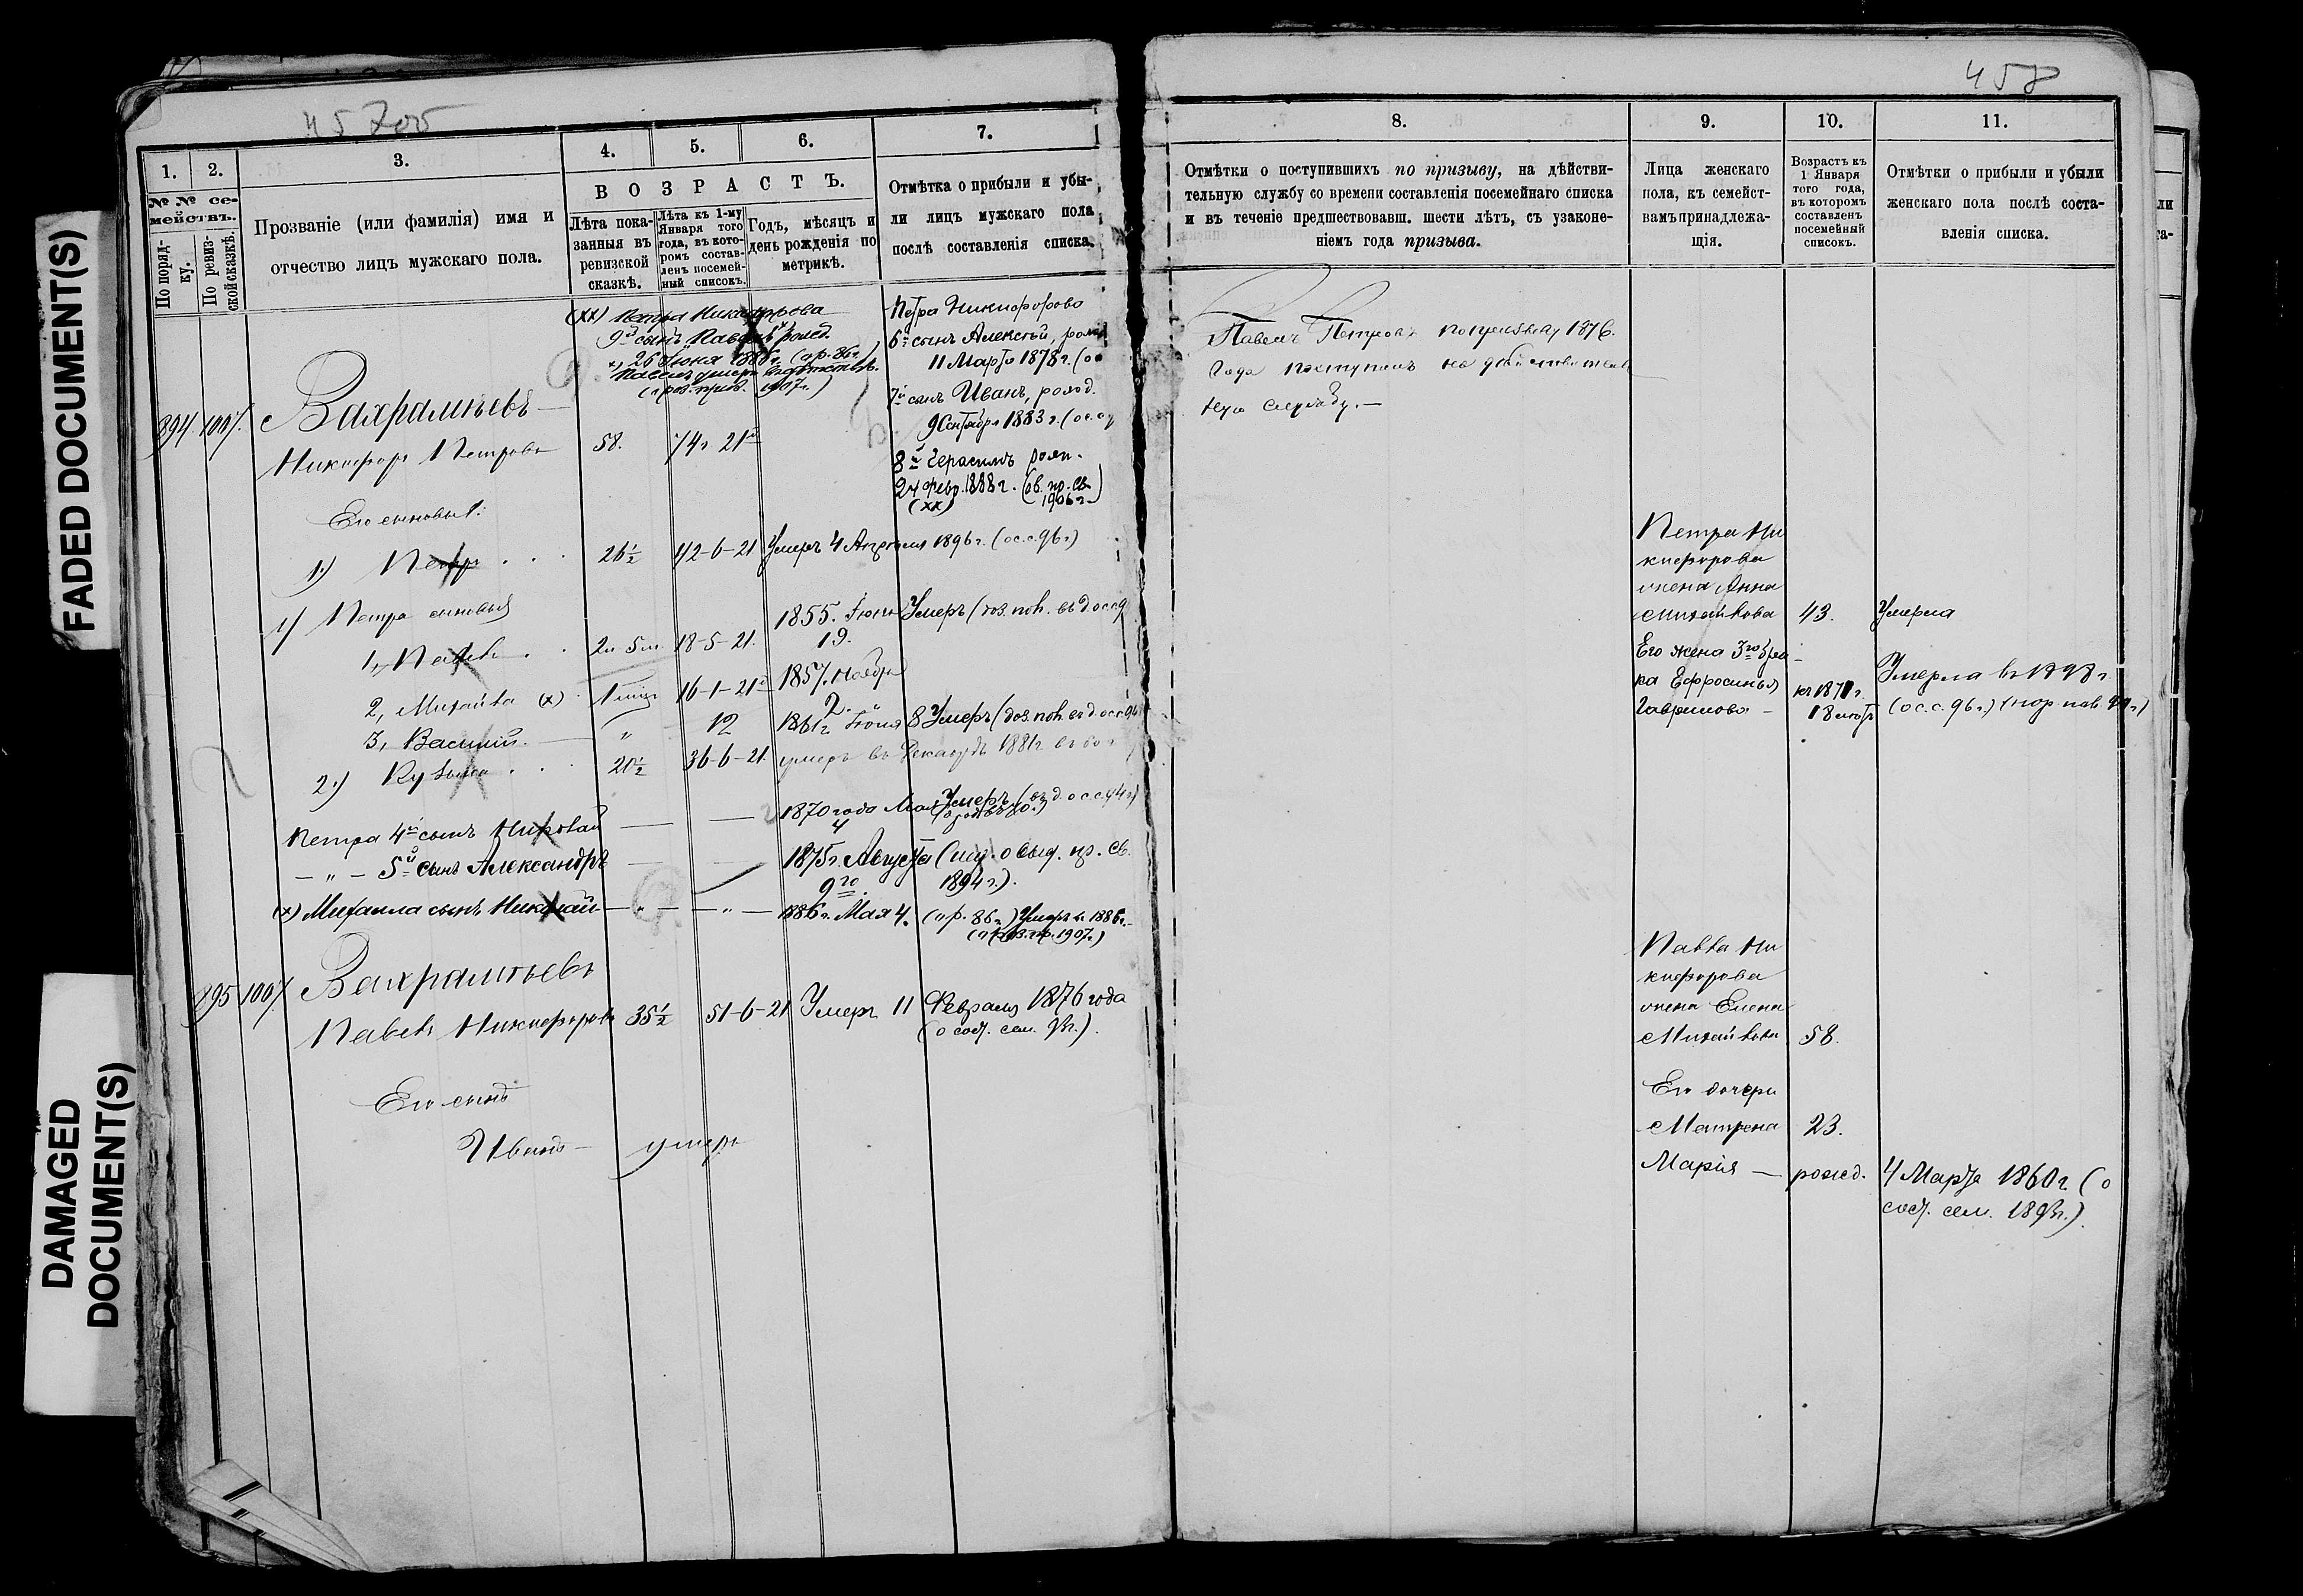 FADED DOCUMENT(S)
DAMAGED
DOCUMENT(S)
457об
458
1.
2.
3.
4.
5.
6.
7.
№ № се-
мействъ.
По поряд-
ку.
По ревиз-
ской сказкѣ.
Прозваніе (или фамилія) имя и
отчество лицъ мужскаго пола.
ВОЗРАСТЪ.
Лѣта пока-
занныя въ
ревизской
сказкѣ.
Лѣта къ 1-му
Января того
года, въ кото-
ромъ состав-
ленъ посемей-
ный списокъ.
Годъ, мѣсяцъ и
день рожденія по
метрикѣ.
Отмѣтка о прибыли и убы-
ли лицъ мужскаго пола
послѣ составленія списка.
(хх) Петра Никифорова
9й сынъ Павелъ рожд.
26 Іюня 1886г. (пр. 86г.)
Павелъ умеръ
1907г.)
Петра Никифорова
6й сынъ Алексѣй, рожд
11 Марта 1878г. (ос
7й сынъ Иванъ, рожд.
9 Сентября 1883г. (ос.с
8й Герасимъ рожд.
24 Февр. 1888г. (об. по. св.
(хх) 1906г.)
894. 1007. Вахрамѣевъ
Никифоръ Петровъ 58. 74г 21д
Его сыновья:
1) Петръ . . 26½ 42-6-21 Умеръ 4 Апрѣля 1896г. (ос.с.96г)
1) Петра сыновья
1, Павелъ . . 2г. 5м. 18-5-21. 1855. Іюня 19. Умеръ
2, Михайла (х) 1 мѣс 16-1-21д 1857. Ноября 2.
3, Василій. — „ 12 1861г. Іюня 8 Умеръ
2) Кузьма . . 20½ 36-6-21. умеръ въ Декабрѣ 1881г.
Петра 4й сынъ Николай — — 1870 года Мая 4 Умеръ
— „ — 5й сынъ Александръ — — 1875г. Августа 9го.
1894г.).
(х) Михаила сынъ Николай — „ — — „ — 1886г. Мая 4. (пр. 86г.) Умеръ в. 1886г.
1907г.)
895 1007. Вахрамѣевъ
Павелъ Никифоровъ 35½ 51-6-21 Умеръ 11 Февраля 1876 года
(о сост. сем.
Его сынъ
Иванъ — умеръ
8.
9.
10.
11.
Отмѣтки о поступившихъ по призыву, на дѣйстви-
тельную службу со времени составленія посемейнаго списка
и въ теченіе предшествовавш. шести лѣтъ, съ узаконе-
ніемъ года призыва.
Лица женскаго
пола, къ семейст-
вамъ принадлежа-
щія.
Возрастъ къ
1 Января
того года,
въ которомъ
составленъ
посемейный
списокъ.
Отмѣтки о прибыли и убыли
женскаго пола послѣ соста-
вленія списка.
Павелъ Петровъ по призыву 1876.
Года поступилъ на дѣйствитель
ную службу. —
Петра Ни
кифорова
жена Анна
Михайлова 43. Умерла
Его жена 3го бра-
ка Ефросинья
Гаврилова —
Умерла
(ос.с.96г.)
Павла Ни
кифорова
жена Елена
Михайлова 58.
Его дочери
Матрена 23.
Марія — рожд. 4 Марта 1860г. (о
сост. сем.